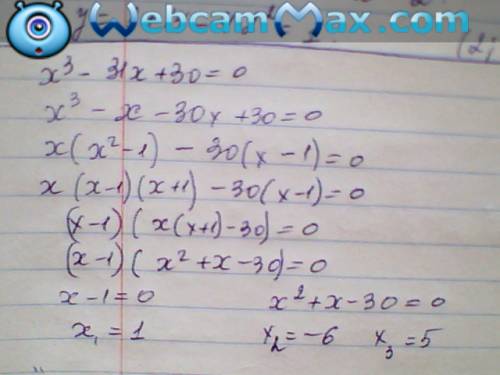 WebcamMax.com
y =
x³ - 31x + 30 = 0
x³ - x - 30x + 30 = 0
x(x² - 1) - 30(x - 1) = 0
x(x-1)(x+1) - 30(x-1) = 0
(x-1)(x(x+1)-30) = 0
(x-1)(x² + x - 30) = 0
x - 1 = 0 x² + x - 30 = 0
x₁ = 1 x₂ = -6 x₃ = 5